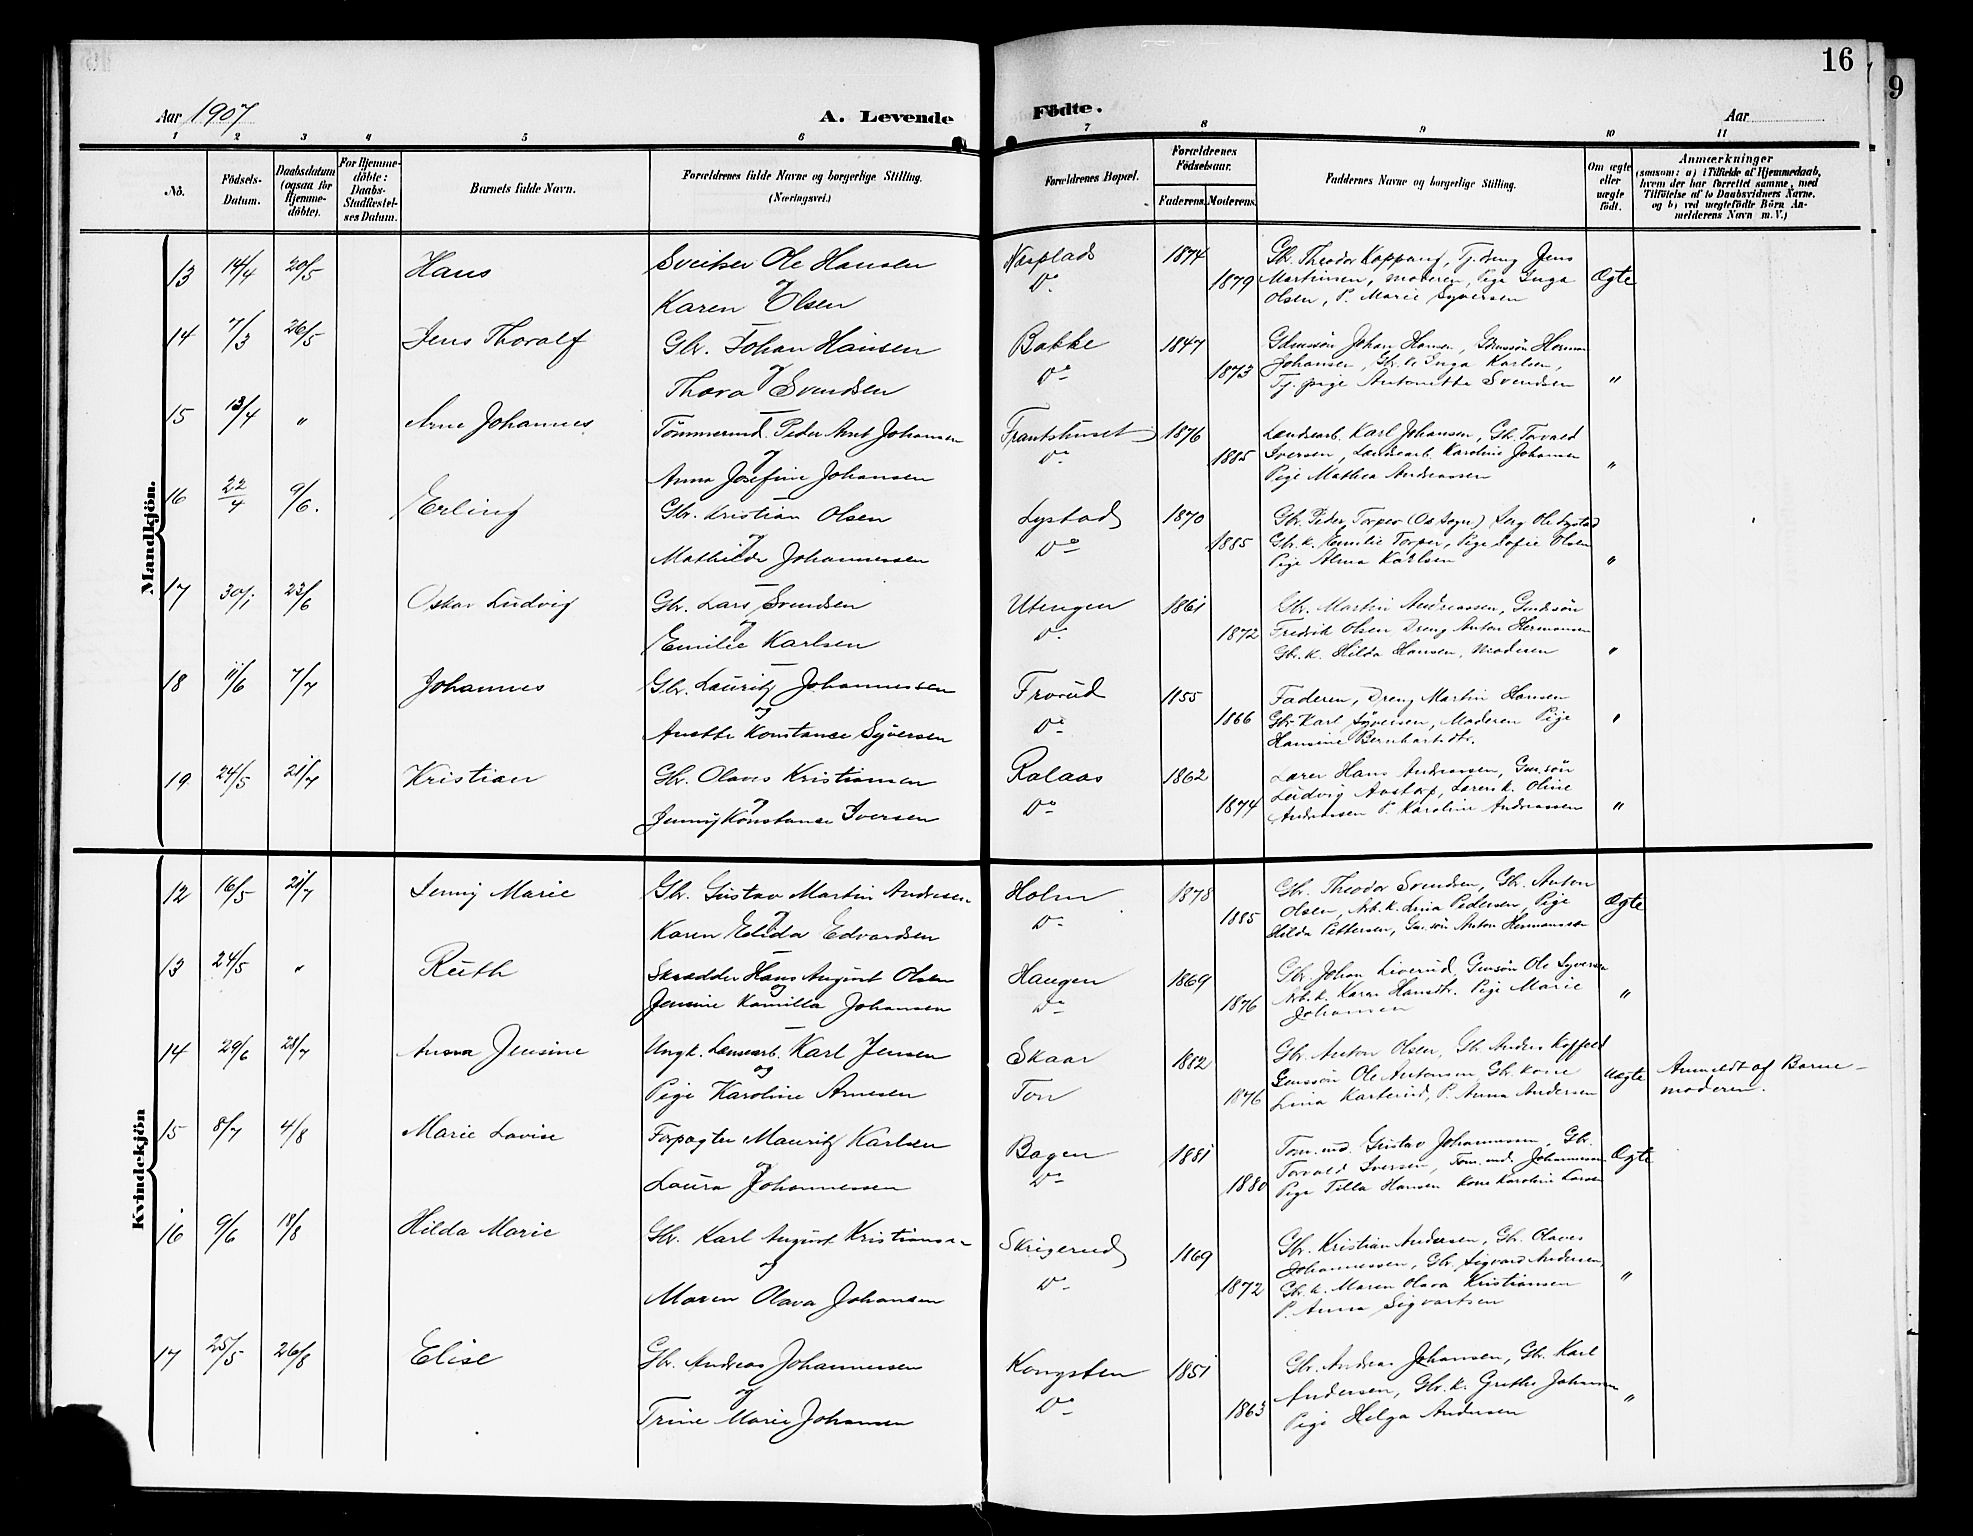 16
9
Aar 1907
A. Levende Födte.
Aar
1 2 3 4 5 6 7 8 9 10 11
No.
Födsels-Datum.
Daabsdatum (ogsaa for Hjemme-döbte).
For Hjemme-döbte: Daabs-Stadfæstel-ses Datum.
Barnets fulde Navn.
Forældrenes fulde Navne og borgerlige Stilling. (Næringsvei.)
Forældrenes Bopæl.
Forældrenes Födselsaar.
Faderens. Moderens.
Faddernes Navne og borgerlige Stilling.
Om ægte eller uægte födt.
Anmærkninger
(saasom: a) i Tilfælde af Hjemmedaab,
hvem der har forrettet samme, med
Tilföielse af to Daabsvidners Navne.
og b) ved uægtefödte Börn An-
melderens Navn m. V.)
Mandkjön.
13 14/4 20/5 Hans
Sveitser Ole Hansen
og
Karen Olsen
Næsplads 1874
Do 1879
Gbr. Theodor Kappang, Tj.dreng Jens
Martinsen, Moderen, Pige Inga
Olsen, P. Marie Syversen
Ægte
14 7/3 26/5 Jens Thoralf
Gbr. Johan Hansen
og
Thora Svendsen
Bakke 1847
Do 1873
Gbrussön Johan Hansen, Gbrussön Herman
Johansen, Gbr. k. Inga Karlsen,
Tj. pige Antonette Svendsen
"
15 13/4 " Arne Johannes
Tömmermd. Peder Ant. Johansen
og
Anna Josefine Johansen
Frantshuset 1876
Do 1885
Landsarb. Karl Johansen, Gbr. Torvald
Iversen, Landsarb. Karoline Johansen
Pige Mathea Andreassen
"
16 22/4 9/6. Erling
Gbr. Kristian Olsen
og
Mathilde Johannessen
Lystad 1870
Do 1885
Gbr. Peder Torper (Os Sogn) Ole Lystad
Gbr. k. Emilie Torper, Pige Sofie Olsen
Pige Alma Karlsen
"
17 30/1 23/6 Oskar Ludvig
Gbr. Lars Svendsen
og
Emilie Karlsen
Utengen 1861
Do 1872
Gbr. Martin Andreassen, Gmdssön
Fredrik Olsen Dreng Anton Hermansen
Gbr. k. Hilda Hansen, Moderen
"
18 11/6 7/7 Johannes
Gbr. Lauritz Johannessen
og
Anette Konstance Syversen
Frorud 1855
Do 1866
Faderen, Dreng Martin Hansen
Gbr Karl Syversen, Moderen Pige
Hansine Bernhartsdtr.
"
19 24/5 21/7 Kristian
Gbr. Olaves Kristiansen
og
Jenny Konstance Iversen
Ralaas 1862
Do 1874
Lærer Hans Andreassen, Gm.sön
Ludvig Aastorp, Lærersk. Oline
Andreassen P. Karoline Andreassen
"
Kvindekjön
12 16/5 21/7 Jenny Marie
Gbr. Gustav Martin Andresen
og
Karen Elida Edvardsen
Holm 1878
Do 1885
Gbr. Theodor Svendsen, Gbr. Anton
Olsen, Arb. k. Lina Pedersen, Pige
Hilda Pettersen, Gm.sön Anton Hermansen
Ægte
13 24/5 " Ruth
Skrædder Hans August Olsen
og
Jensine Kamilla Johansen
Haugen 1869
Do 1876
Gbr. Johan Liverud, Gmsön Ole Syversen
Arb. k. Karen Hansdtr. Pige Marie
Johansen
"
14 29/6 21/7 Anna Jensine
Ungk. Lænsearb. Karl Jensen
og
Pige Karoline Arnesen
Skaar 1882
Ton 1876
Gbr. Anton Olsen, Gbr. Anders Kopfeld
Gmssön Ole Antonsen Gbr. kone
Lina Karterud, P. Anna Andersen
Uægte
Anmeldt af Barne-
moderen.
15 8/7 4/8 Marie Lovise
Forpagter Mauritz Karlsen
og
Laura Johannessen
Bagen 1881
Do 1880
Tom.md. Gustav Johannessen, Gbr.
Torvald Iversen, Tom.md. Johannessen
Pige Tilla Hansen Kone Karoline Larsen
Ægte
16 9/6 18/8 Hilda Marie
Gbr. Karl August Kristiansen
og
Maren Olava Johansen
Skrigerud 1869
Do 1872
Gbr. Kristian Andersen, Gbr. Olaves
Johannessen, Gbr. Sigvard Andersen,
Gbr. k. Maren Olava Kristiansen
P. Anna Sigvartsen
"
17 25/5 26/8 Elise
Gbr. Andreas Johannessen
og
Trine Marie Johansen
Kongsten 1851
Do 1863
Gbr. Andreas Johansen, Gbr. Karl
Andersen, Gbr. k. Grethe Johansen
Pige Helga Andersen
"